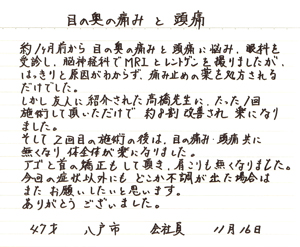 目の奥の痛みと頭痛
約1ヶ月前から目の奥の痛みと頭痛に悩み、眼科を
受診し、脳神経科でMRIとレントゲンを撮りましたが、
はっきりと原因がわからず、痛み止めの薬を処方される
だけでした。
しかし友人に紹介された高橋先生に、たった1回
施術して頂いただけで 約8割改善され 楽になり
ました。
そして2回目の施術の後は、目の痛み・頭痛共に
無くなり 体全体が楽になりました。
アゴと首の矯正もして頂き、肩こりも無くなりました。
今回の症状以外にも どこか不調が出た場合は
またお願いしたいと思います。
ありがとうございました。
47才 八戸市 会社員 11月16日